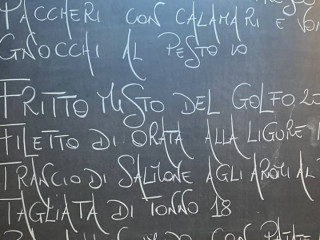 PACCHERI CON CALAMARI E
GNOCCHI AL PESTO 10
FRITTO MISTO DEL GOLFO 20
FILETTO DI ORATA ALLA LIGURE
TRANCIO DI SALMONE AGLI AROMI AL
TAGLIATA DI TONNO 18
CON PATATE